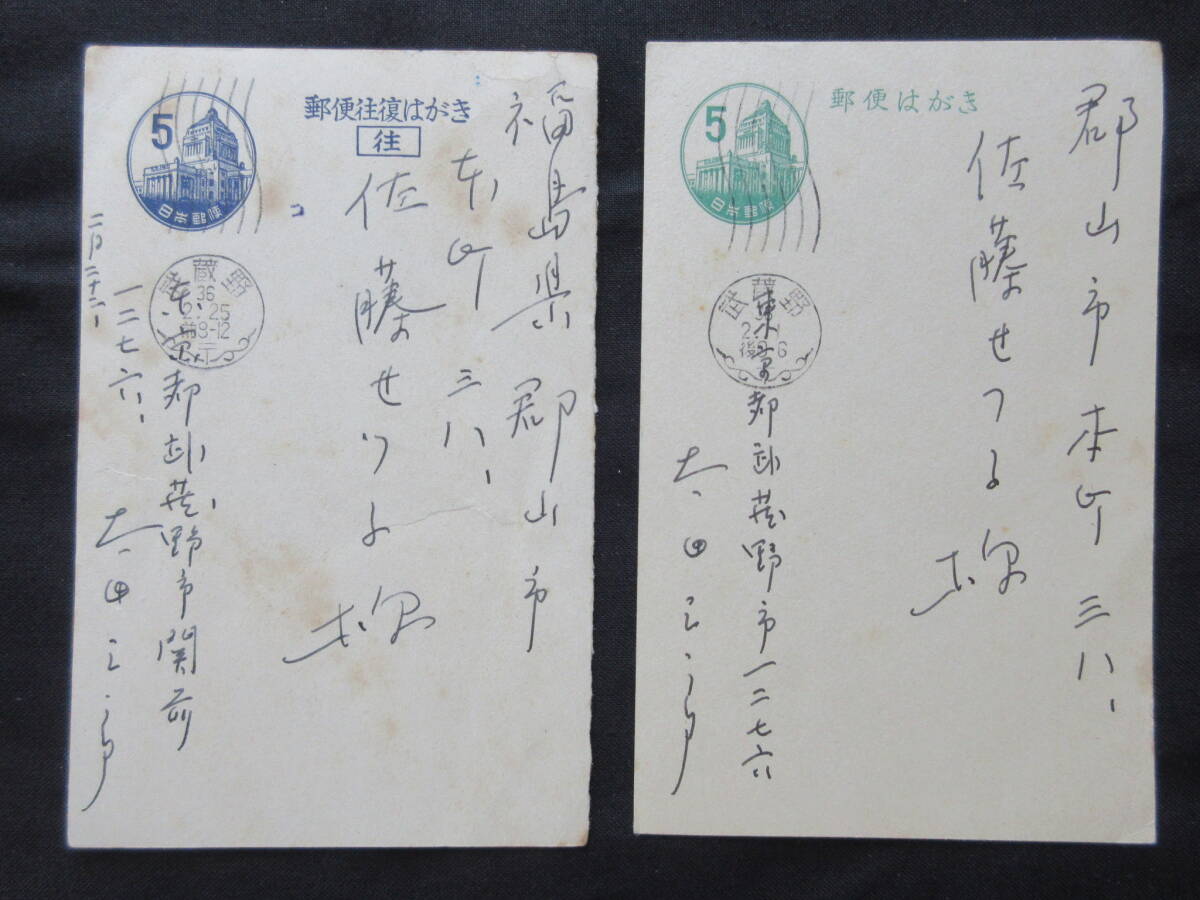 郵便往復はがき
往
5
日本郵便
福島県郡山市
本町三八、
佐藤せつよ様
武蔵野
36
2.25
前8-12
東京都武蔵野市関前
一二七六、
二月二十二、
郵便はがき
5
日本郵便
郡山市本町三八、
佐藤せつよ様
武蔵野
東京都武蔵野市一二七六